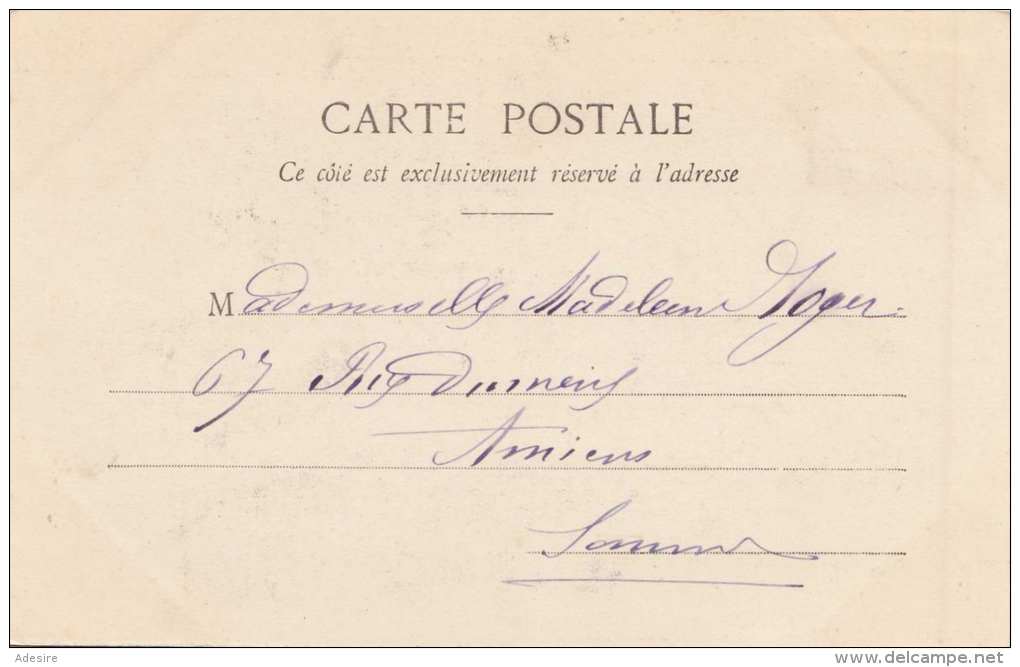 CARTE POSTALE
Ce côté est exclusivement réservé à l'adresse
Mademoiselle Madeleine
67 Rue Dumeril
Amiens
Somme
Adesire
www.delcampe.net